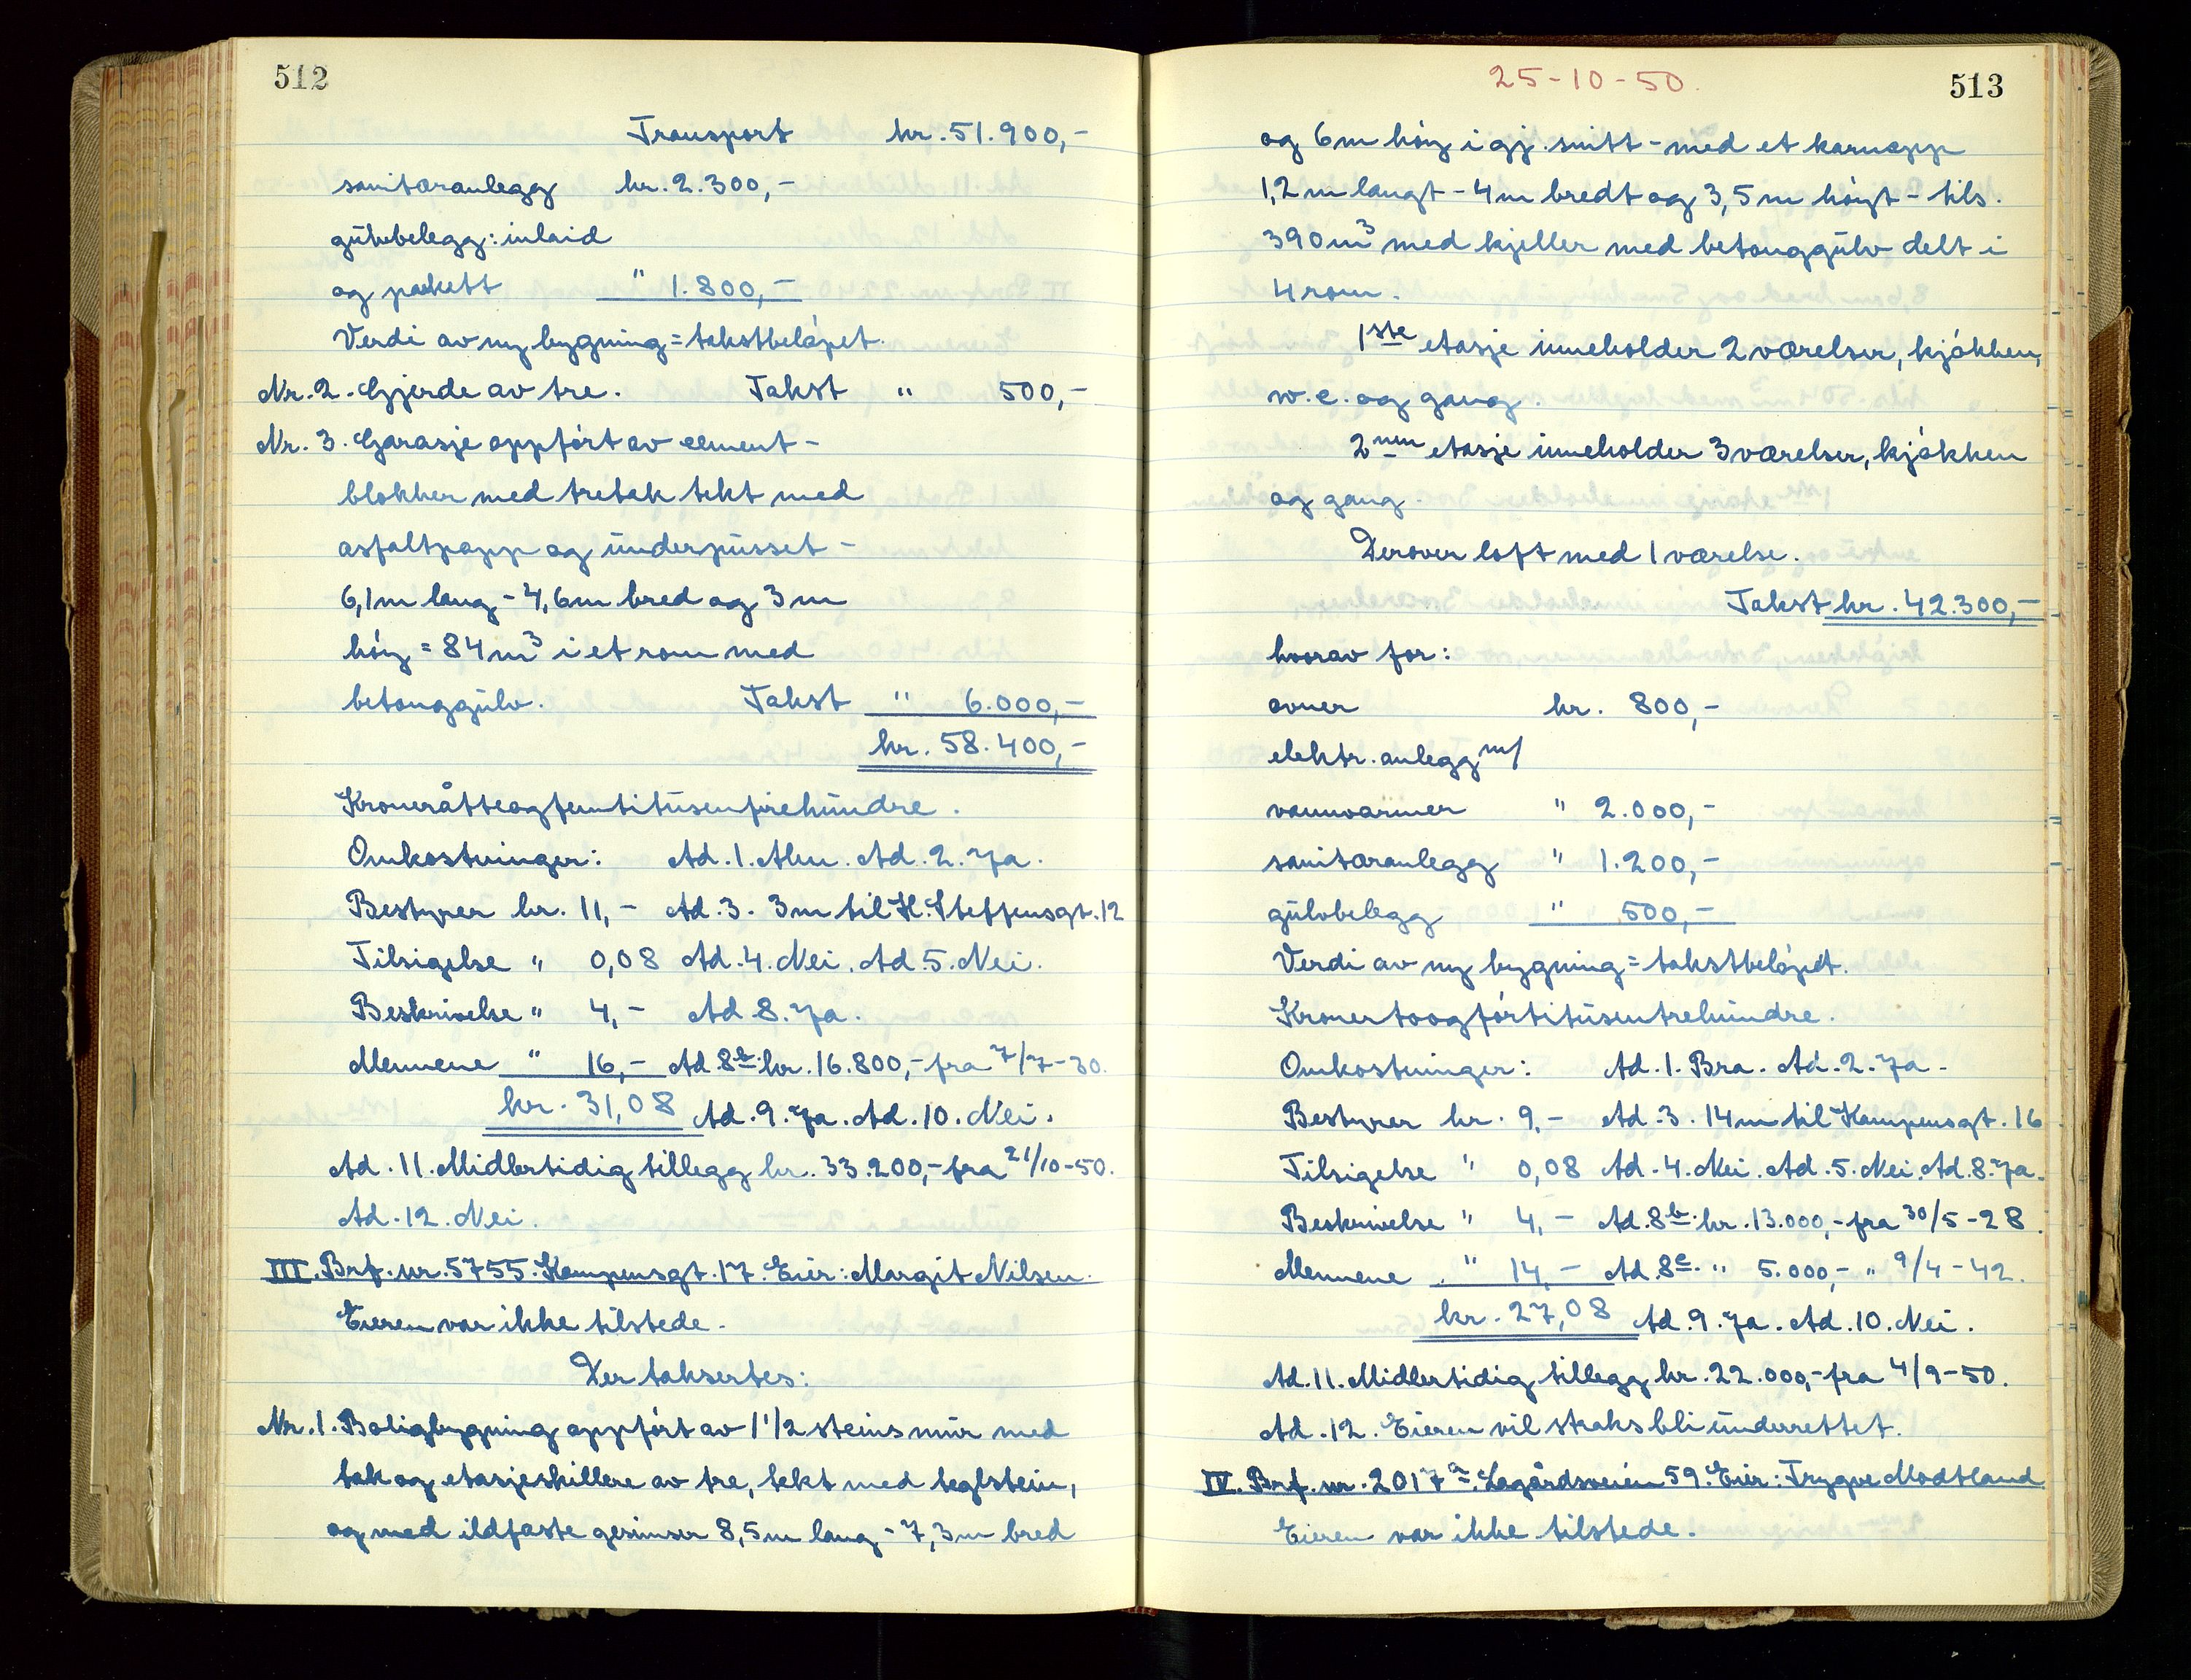 512
Transport kr. 51.900,-
sanitæranlegg kr. 2.300,-
gulvbelegg: inlaid
og parkett " 1.800,-
Verdi av ny bygning = takstbeløpet.
Nr. 2. Gjerde av tre. Takst " 500,-
Nr. 3. Garasje oppført av cement-
blokker med tretak tekt med
asfaltpapp og underpusset -
6,1 m lang - 4,6 m bred og 3 m
høy = 84 m³ i et rom med
betonggulv. Takst " 6.000,-
kr. 58.400,-
Kroneråtteogfemtitusenfirehundre.
Omkostninger: Ad. 1. Alm. Ad. 2. Ja.
Bestyrer kr. 11,- Ad. 3. 3 m til H. Steffensgt. 12
Tilsigelse " 0,08 Ad. 4. Nei. Ad. 5. Nei.
Beskrivelse " 4,- Ad. 8. Ja.
Mennene " 16,- Ad. 8b. kr. 16.800,- fra 7/7-30.
kr. 31,08 Ad. 9. Ja. Ad. 10. Nei.
Ad. 11. Midlertidig tillegg kr. 33.200,- fra 21/10-50.
Ad. 12. Nei.
III. Brf. nr. 5755. Kampensgt. 17. Eier: Margit Nilsen.
Eieren var ikke tilstede.
Der taksertes:
Nr. 1. Boligbygning oppført av 1 1/2 steins mur med
tak og etasjeskillere av tre, tekt med teglstein,
og med ildfaste gesimser 8,5 m lang - 7,3 m bred
25-10-50.
513
og 6 m høy i gj. snitt - med et karnapp
1,2 m langt - 4 m bredt og 3,5 m høyt - tils.
390 m³ med kjeller med betonggulv delt i
4 rom.
1ste etasje inneholder 2 værelser, kjøkken,
w.c. og gang.
2nen etasje inneholder 3 værelser, kjøkken
og gang.
Derover loft med 1 værelse.
Takst kr. 42.300,-
hvorav for:
ovner kr. 800,-
elektr. anlegg m/
vannvarmer " 2.000,-
sanitæranlegg " 1.200,-
gulvbelegg " 500,-
Verdi av ny bygning = takstbeløpet.
Kronertoogførtitusentrehundre.
Omkostninger: Ad. 1. Bra. Ad. 2. Ja.
Bestyrer kr. 9,- Ad. 3. 14 m til Kampensgt. 16
Tilsigelse " 0,08 Ad. 4. Nei. Ad. 5. Nei. Ad. 8. Ja.
Beskrivelse " 4,- Ad. 8b. kr. 13.000,- fra 30/5-28.
Mennene " 14,- Ad. 8c. " 5.000,- " 9/4-42.
kr. 27,08 Ad. 9. Ja. Ad. 10. Nei.
Ad. 11. Midlertidig tillegg kr. 22.000,- fra 4/9-50.
Ad. 12. Eieren vil straks bli underrettet.
IV. Brf. nr. 2017a. Lagårdsveien 59. Eier: Trygve Modtland
Eieren var ikke tilstede.